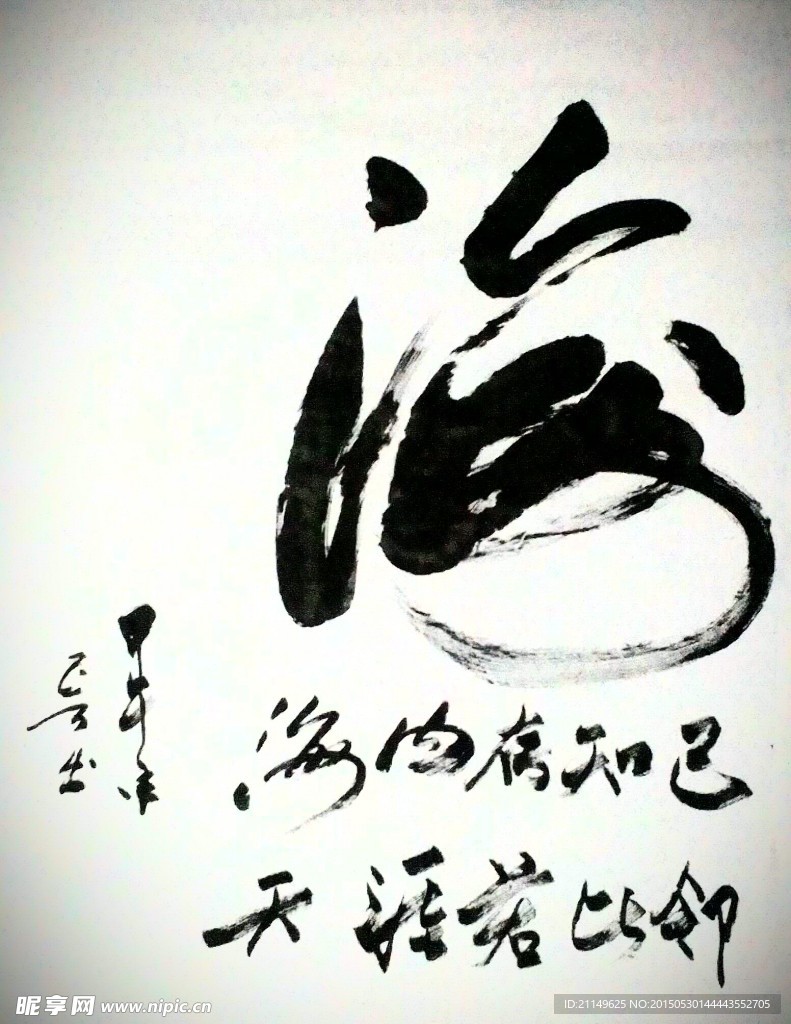 海
海内存知己
天涯若比邻
甲午年
昵享网 www.nipic.cn
ID:21149625 NO:20150530144443552705